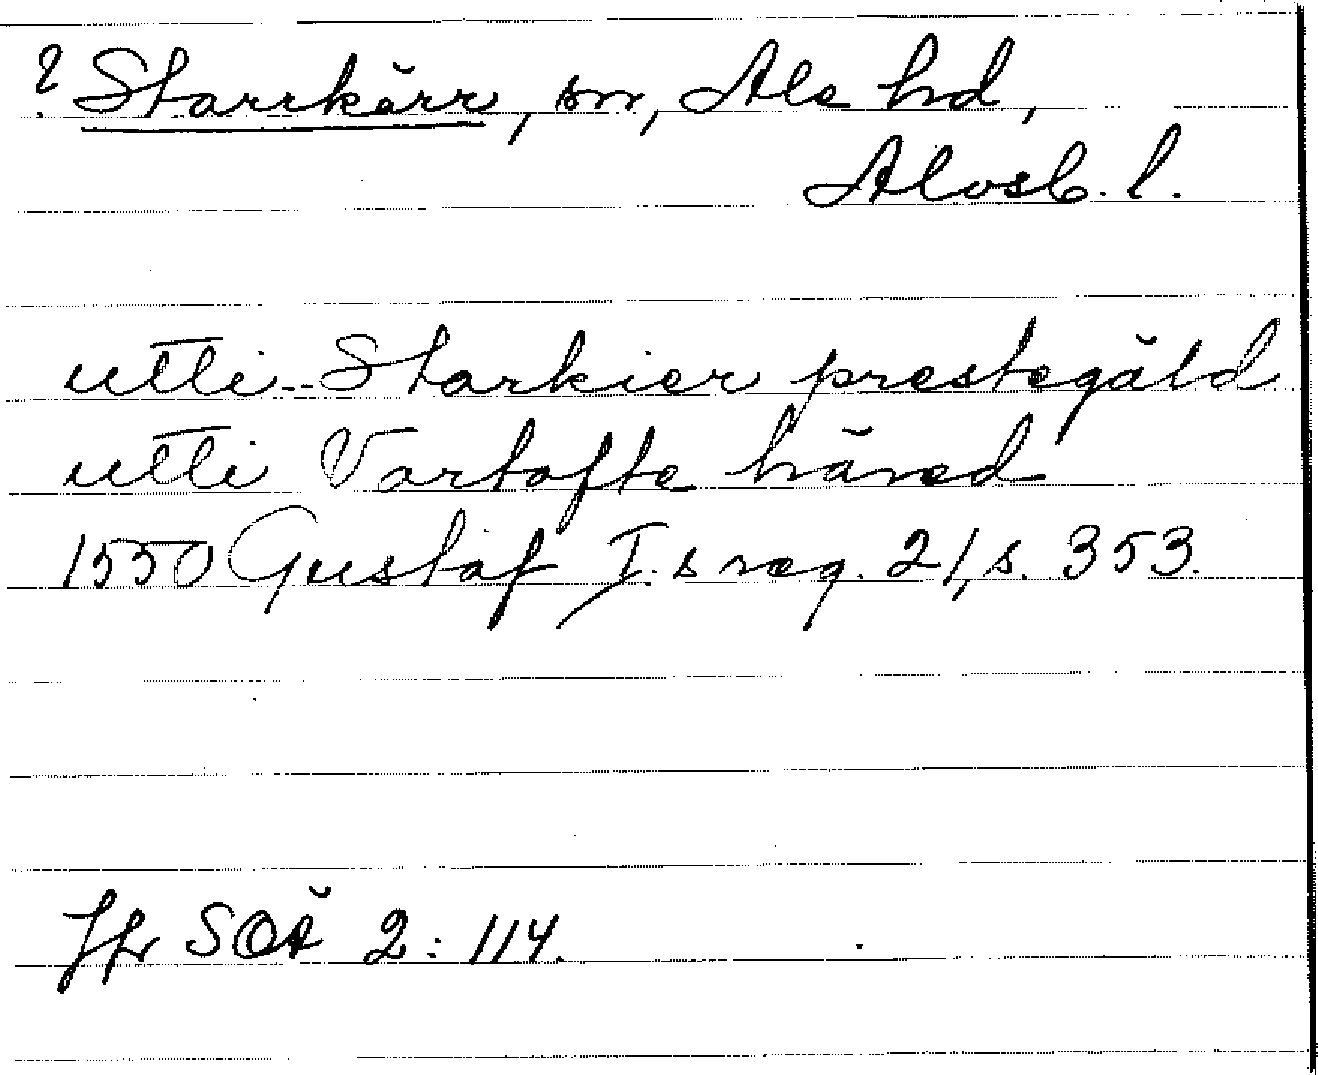 ? Starrkärr, sn, Ale hd,
Älvsb. l.
utti -- Starkier prestegäld
utti Vartofte häred
1550 Gustaf I:s reg. 21, s. 353.
Jfr SOÄ 2: 114.